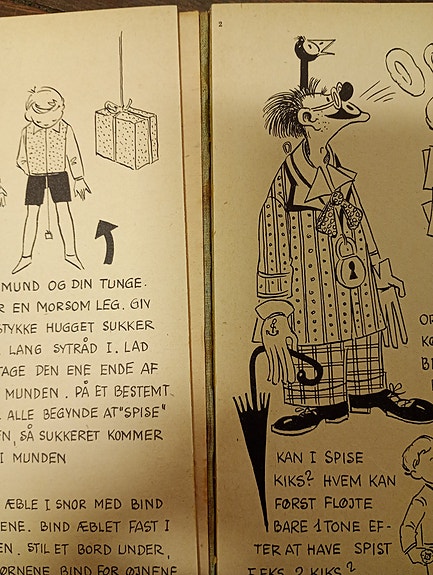 MUND OG DIN TUNGE.
R EN MORSOM LEG. GIV
STYKKE HUGGET SUKKER
LANG SYTRÅD I. LAD
TAGE DEN ENE ENDE AF
MUNDEN. PÅ ET BESTEMT
ALLE BEGYNDE AT "SPISE"
EN, SÅ SUKKERET KOMMER
I MUNDEN
ÆBLE I SNOR MED BIND
ENE. BIND ÆBLET FAST I
EN. STIL ET BORD UNDER,
ØRNENE BIND FOR ØJNENE
2
KAN I SPISE
KIKS? HVEM KAN
FØRST FLØJTE
BARE 1 TONE EF-
TER AT HAVE SPIST
F.EKS. 2 KIKS?